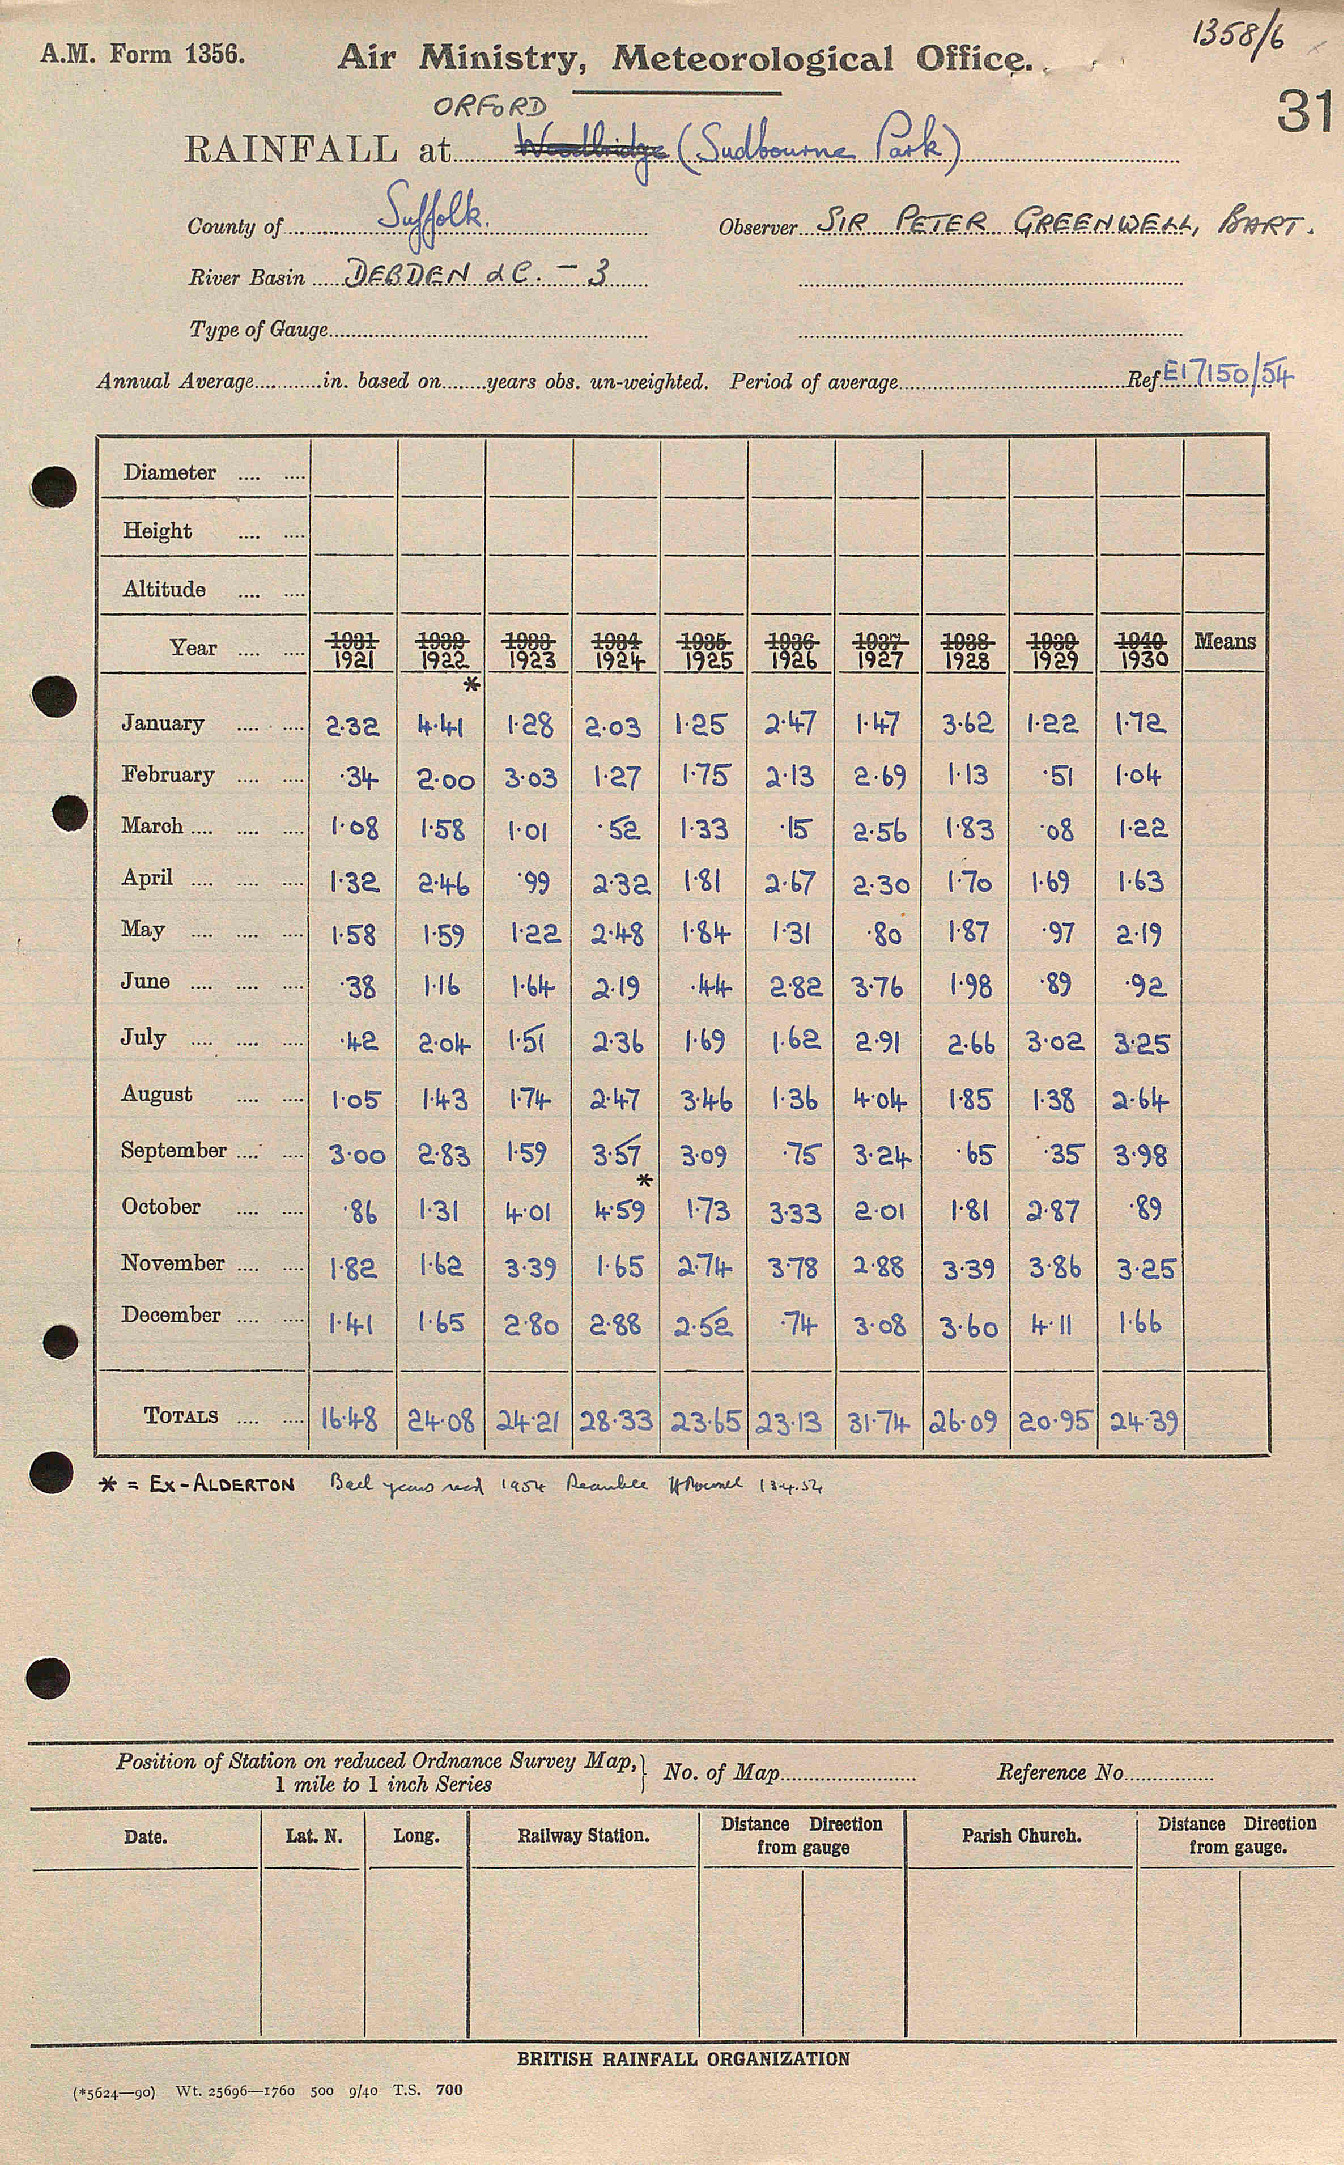 1358/6
A.M. Form 1356. Air Ministry, Meteorological Office.
31
ORFORD
RAINFALL at Woodbridge (Sudbourne Park)
County of Suffolk. Observer SIR PETER GREENWELL, BART.
River Basin DEBDEN &C. - 3
Type of Gauge
Annual Average in. based on years obs. un-weighted. Period of average Ref. E17150/54
Diameter
Height
Altitude
Year 1931 1932 1933 1934 1935 1936 1937 1938 1939 1940 Means
1921 1922 1923 1924 1925 1926 1927 1928 1929 1930
*
January 2.32 4.41 1.28 2.03 1.25 2.47 1.47 3.62 1.22 1.72
February .34 2.00 3.03 1.27 1.75 2.13 2.69 1.13 .51 1.04
March 1.08 1.58 1.01 .52 1.33 .15 2.56 1.83 .08 1.22
April 1.32 2.46 .99 2.32 1.81 2.67 2.30 1.70 1.69 1.63
May 1.58 1.59 1.22 2.48 1.84 1.31 .80 1.87 .97 2.19
June .38 1.16 1.64 2.19 .44 2.82 3.76 1.98 .89 .92
July .42 2.04 1.51 2.36 1.69 1.62 2.91 2.66 3.02 3.25
August 1.05 1.43 1.74 2.47 3.46 1.36 4.04 1.85 1.38 2.64
September 3.00 2.83 1.59 3.57 3.09 .75 3.24 .65 .35 3.98
*
October .86 1.31 4.01 4.59 1.73 3.33 2.01 1.81 2.87 .89
November 1.82 1.62 3.39 1.65 2.74 3.78 2.88 3.39 3.86 3.25
December 1.41 1.65 2.80 2.88 2.52 .74 3.08 3.60 4.11 1.66
TOTALS 16.48 24.08 24.21 28.33 23.65 23.13 31.74 26.09 20.95 24.39
* = EX-ALDERTON Back years 1954
Position of Station on reduced Ordnance Survey Map, No. of Map Reference No.
1 mile to 1 inch Series
Date. Lat. N. Long. Railway Station. Distance Direction from gauge Parish Church. Distance Direction from gauge.
BRITISH RAINFALL ORGANIZATION
(*5624—90) Wt. 25696—1760 500 9/40 T.S. 700